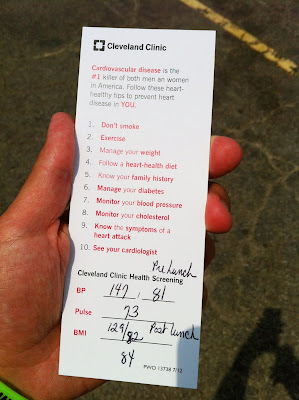 Cleveland Clinic
Cardiovascular disease is the
#1 killer of both men an women
in America. Follow these heart-
healthy tips to prevent heart
disease in YOU.
1. Don't smoke
2. Exercise
3. Manage your weight
4. Follow a heart-health diet
5. Know your family history
6. Manage your diabetes
7. Monitor your blood pressure
8. Monitor your cholesterol
9. Know the symptoms of a
heart attack
10. See your cardiologist
Pre lunch
Cleveland Clinic Health Screening
BP 147, 81
Pulse 73
BMI 129/82 Post lunch
84
PWO 13738 7/12